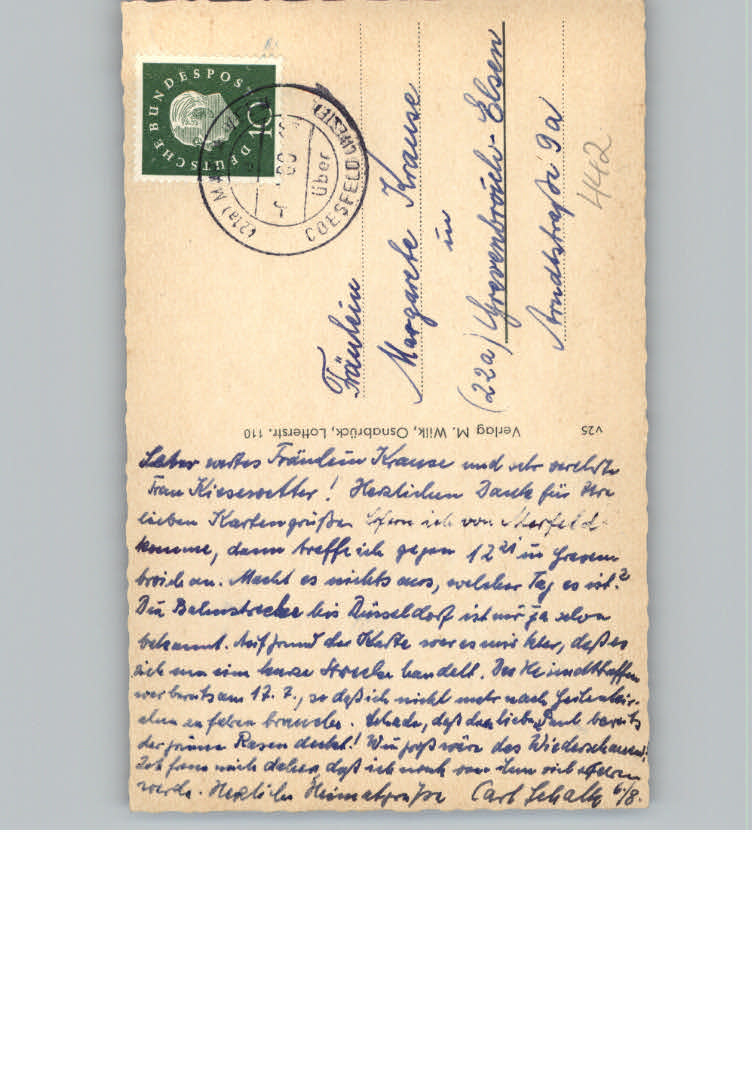 DEUTSCHE BUNDESPOST
10
(21a) M
über
COESFELD (WESTF)
Fräulein
Margarete Krause
in
(22a) Grevenbroich-Elsen
Arndtstraße 9a
442
V25 Verlag M. Wilk, Osnabrück, Lotterstr. 110
Sehr wertes Fräulein Krause und sehr verehrte
Frau Kiesewetter! Herzlichen Dank für Ihre
lieben Kartengrüße. Sofern ich von Merfeld
komme, dann treffe ich gegen 12 21 in Greven
broich an. Macht es nichts aus, welcher Tag es ist?
Die Bahnstrecke bis Düsseldorf ist mir ja schon
bekannt. Auf Grund der Karte war es mir klar, daß es
sich um eine kurze Strecke handelt. Das Heimattreffen
war bereits am 17. 7., so daß ich nicht mehr nach
zu fahren brauche. Schade, daß den lieben Paul bereits
der grüne Rasen deckt! Wie groß wäre das Wiederschauen!
Ich freue mich daher, daß ich noch von ihm viel erfahren
werde. Herzliche Heimatgrüße Carl Schaltz 6/8.